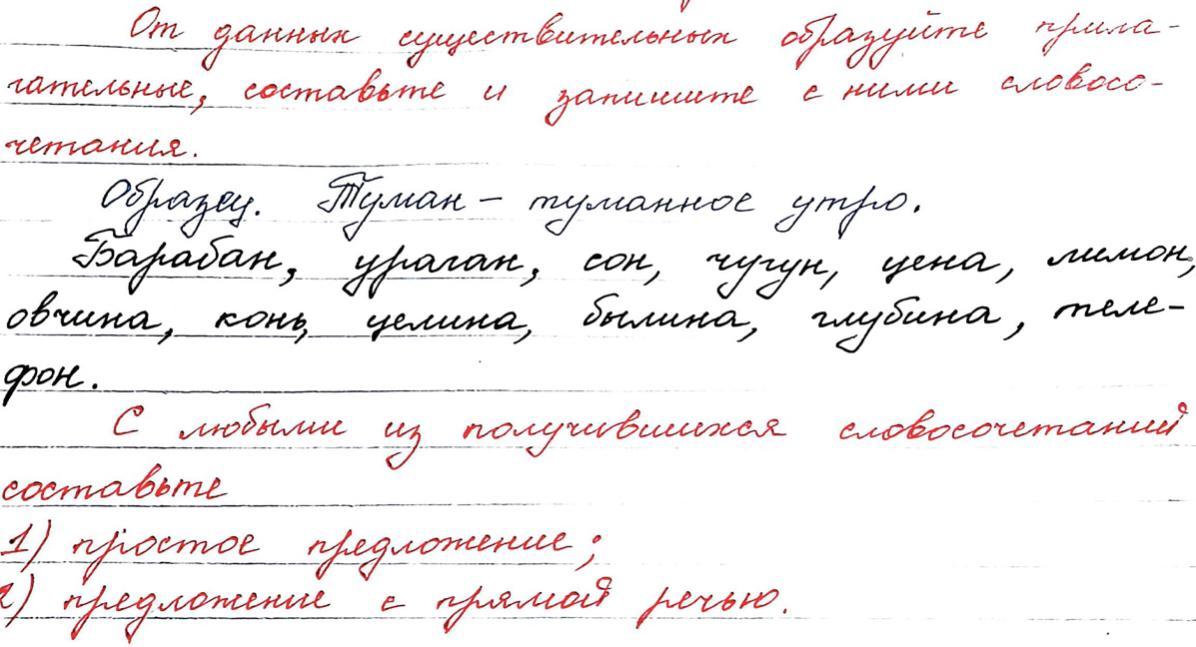 От данных существительных образуйте прила-
гательные, составьте и запишите с ними словосо-
четания.
Образец. Туман – туманное утро.
Барабан, ураган, сон, чугун, цена, лимон,
овчина, конь, целина, былина, глубина, теле-
фон.
С любыми из получившихся словосочетаний
составьте
1) простое предложение;
2) предложение с прямой речью.